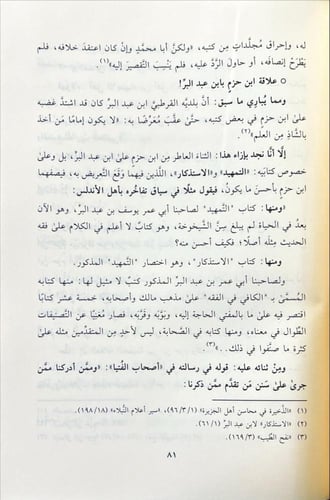 له، وإحراق مُجلَّداتٍ مِن كتبه، «ولكنَّ أبا محمَّد وإنْ كان اعتقدَ خلافه، فلم
يَطَّرِحْ إنصافَه، أو حاول الرَّد عليه، فلم يَنْسِبْ التَّقصيرَ إليه»(١).
○ علاقة ابن حزمٍ بابن عبد البرِّ!
ومما يُباري ما سبق: أنَّ بلديَّه القرطبيَّ ابن عبد البرِّ كان قد اشتدَّ غضبه
على ابن حزمٍ في بعض كتبه، حتَّى عقَّب مُعَرِّضًا به: «لا يكون إمامًا مَن أخذ
بالشَّاذِ مِن العلم»(٢).
إلَّا أنَّا نجد بإزاء هذا: الثناءَ العاطر مِن ابن حزمٍ على ابن عبد البرِّ، بل وعلى
خصوص كتابَيه: «التمهيد» و«الاستذكار»، اللَّذين فيهما وَقَعَ التَّعريض به، فيصفهما
ابن حزمٍ بأحسنِ ما يكونُ، فيقول مثلًا في سياق تفاخُره بأهل الأندلس:
«ومنها: كتاب "التَّمهيد" لصاحبنا أبي عمر يوسف بن عبد البرِّ، وهو الآن
بعدُ في الحياة لم يبلغ سِنَّ الشَّيخوخة، وهو كتابٌ لا أعلم في الكلام على فقه
الحديث مثلَه أصلًا؛ فكيف أحسن منه؟
ومنها: كتاب "الاستذكار"، وهو اختصار "التَّمهيد" المذكور.
ولصاحبنا أبي عمر ابن عبد البرِّ المذكور كتبٌ لا مثيل لها: منها كتابه
المُسمَّى بـ "الكافي في الفقه" على مذهب مالك وأصحابه، خمسة عشر كتابًا
اقتصر فيه على ما بالمفتي الحاجة إليه، وبَوَّبه وقرَّبه، فصار مُغنِيًا عن التصنيفات
الطِّوال في معناه، ومنها كتابه في الصَّحابة، ليس لأحدٍ مِن المتقدِّمين مثلُه على
كثرة ما صنَّفوا في ذلك..»(٣).
ومِنْ ثنائه عليه: قوله في رسالته في «أصحاب الفُتيا»: «وممَّن أدركنا ممَّن
جرىٰ على سَنَن مَن تقدَّم ممَّن ذكرنا:
(١) «الذَّخيرة في محاسن أهل الجزيرة» (٩٦/٣/١)، «سير أعلام النُّبلاء» (١٩٨/١٨).
(٢) «الاستذكار» لابن عبد البرِّ (٦١/١).
(٣) «نفح الطِّيب» (١٦٩/٣).
٨١